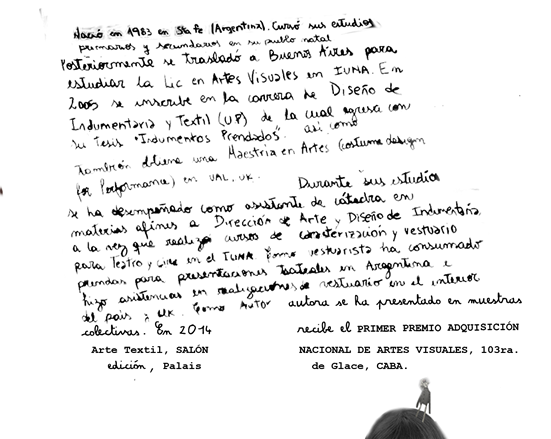 Nació en 1983 en Sta Fe (Argentina). Cursó sus estudios
primarios y secundarios en su pueblo natal
Posteriormente se trasladó a Buenos Aires para
estudiar la Lic en Artes Visuales en IUNA. En
2005 se inscribe en la carrera de Diseño de
Indumentaria y Textil (UP) de la cual egresa con
su Tesis "Indumentos Prendados". así como
también obtiene una Maestría en Artes (costume design
for Performance) en UAL, UK. Durante sus estudios
se ha desempeñado como asistente de cátedra en
materias afines a Dirección de Arte y Diseño de Indumentaria
a la vez que realizó cursos de caracterización y vestuario
para Teatro y Cine en el IUNA. Como vestuarista ha consumado
prendas para presentaciones teatrales en Argentina e
hizo asistencias en realizaciones de vestuario en el interior
del país y UK. Como Autor autora se ha presentado en muestras
colectivas. En 2014 recibe el PRIMER PREMIO ADQUISICIÓN
Arte Textil, SALÓN NACIONAL DE ARTES VISUALES, 103ra.
edición, Palais de Glace, CABA.